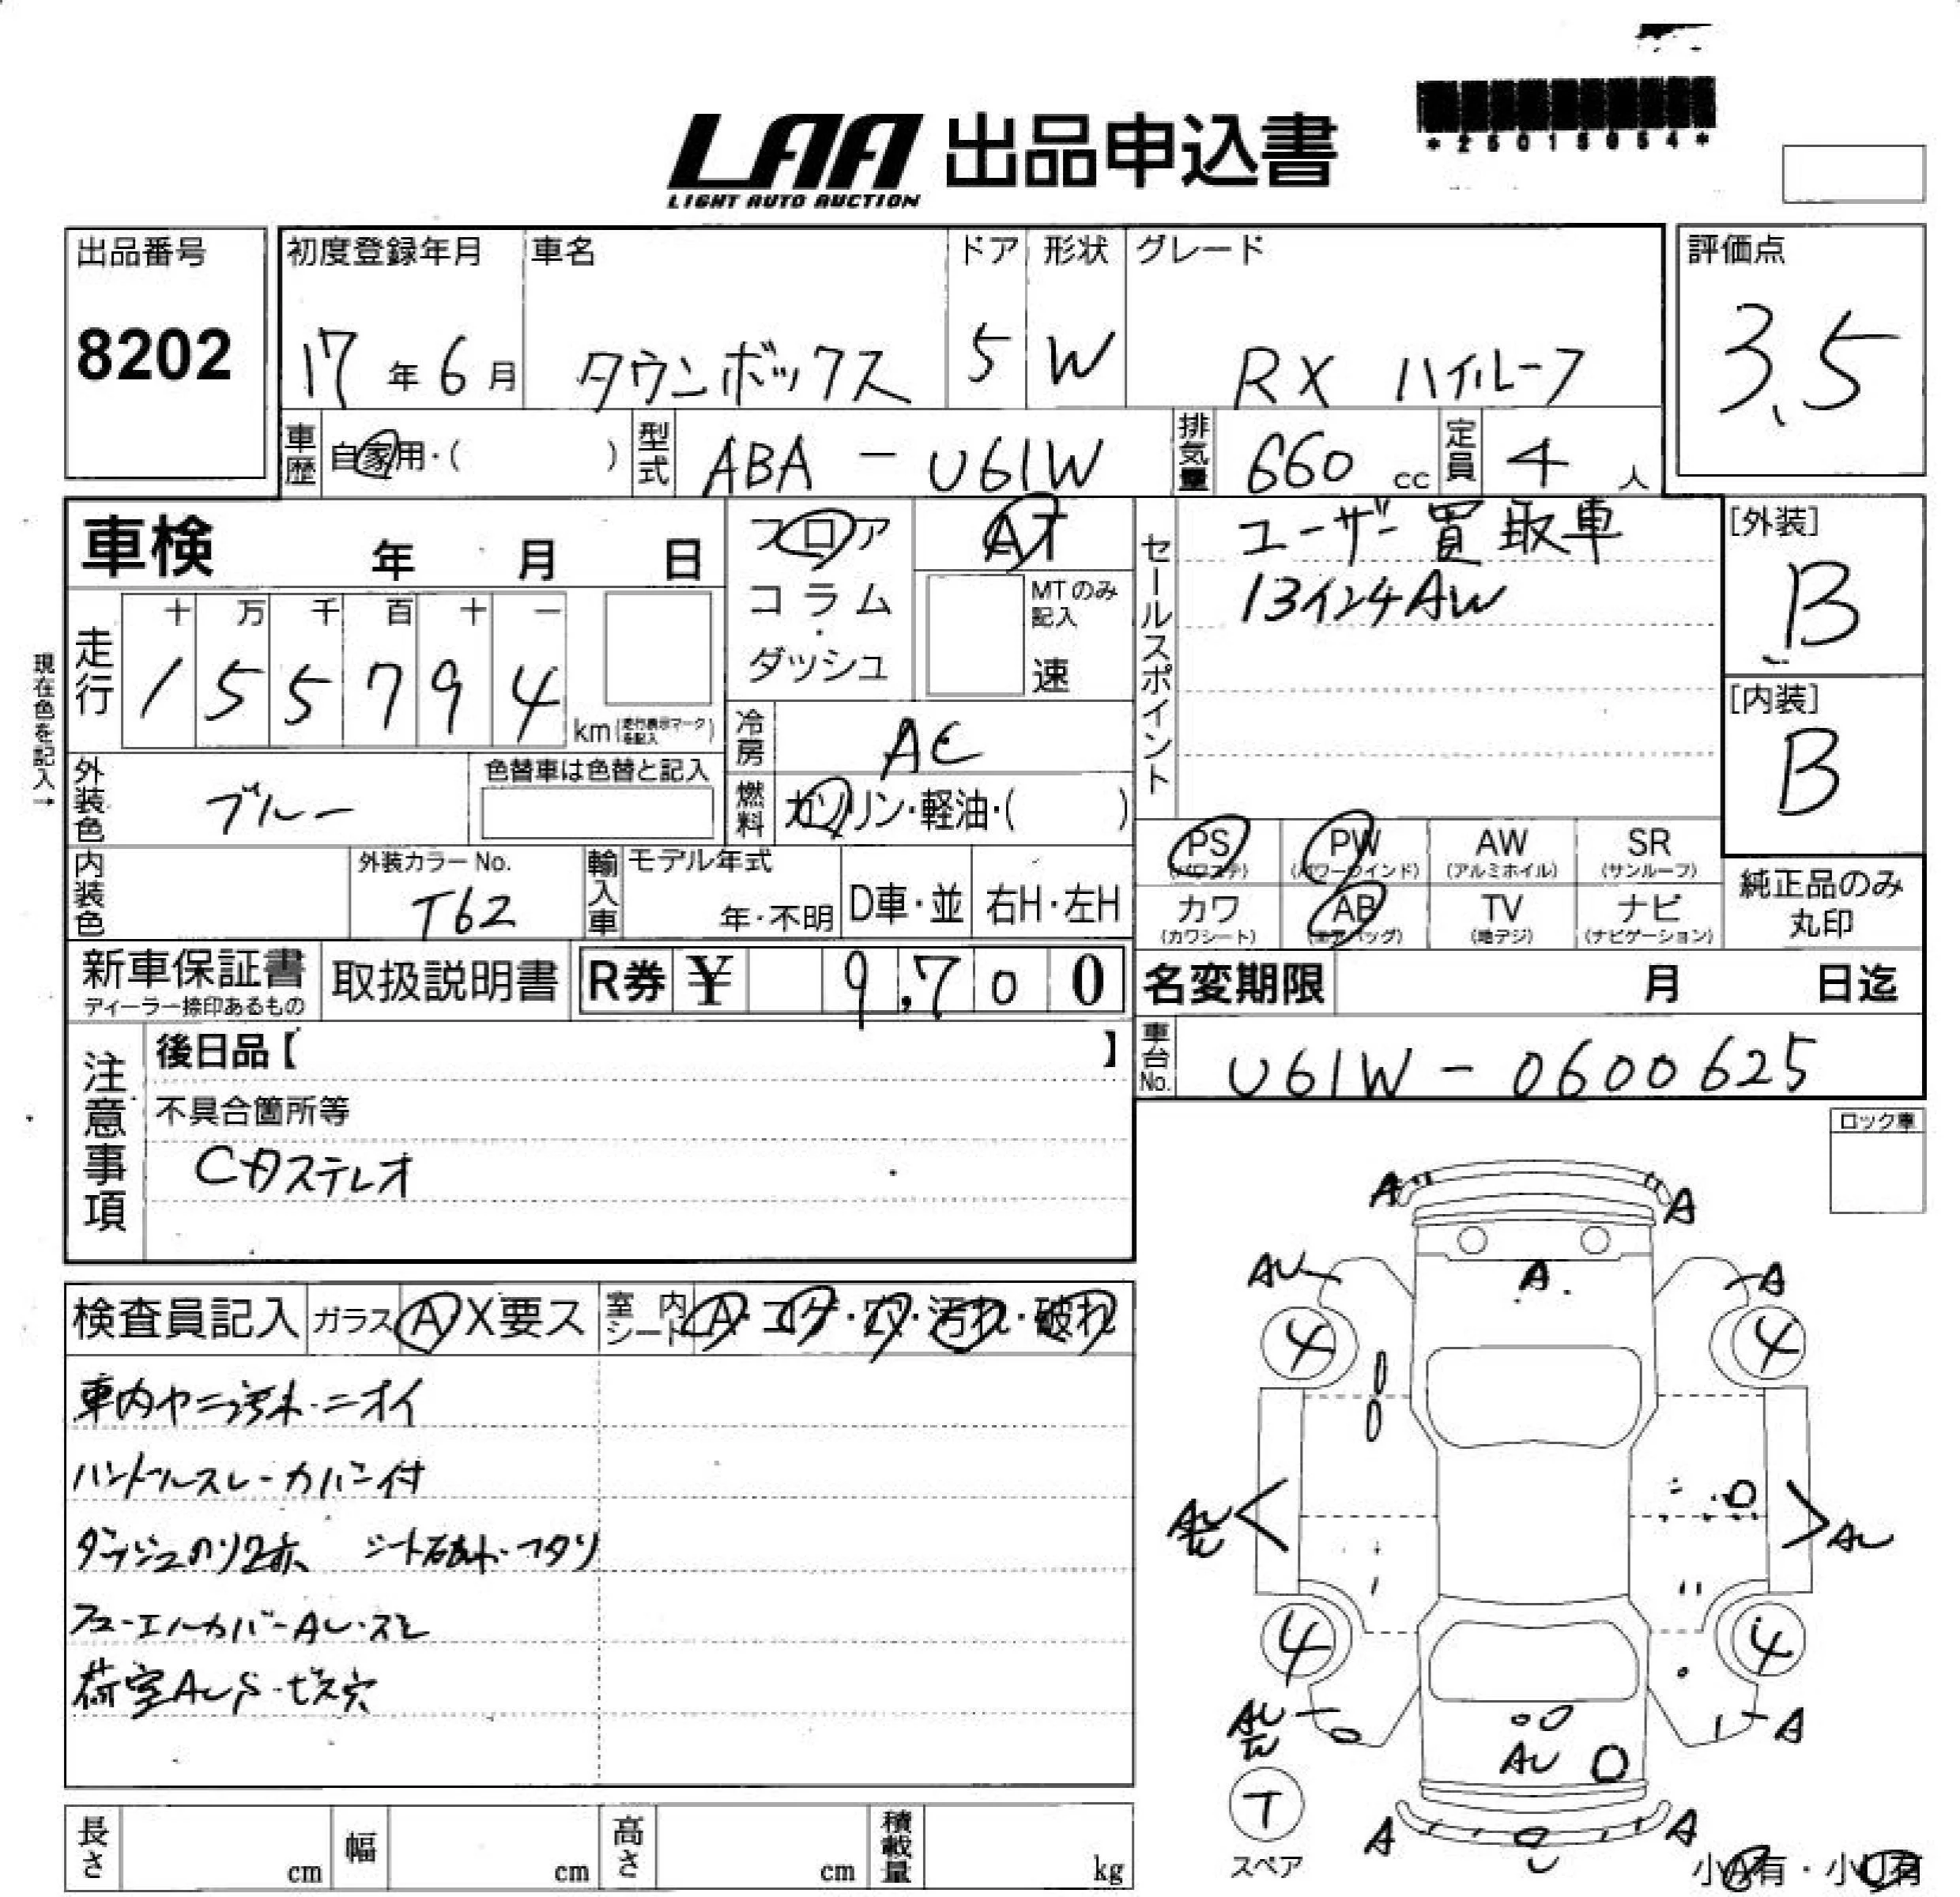 *25015054*
LAA 出品申込書
LIGHT AUTO AUCTION
出品番号 8202
初度登録年月 17年6月
車名 タウンボックス
ドア 5
形状 W
グレード RX ハイルーフ
評価点 3.5
車歴 自家用・( )
型式 ABA-U61W
排気量 660 cc
定員 4 人
車検 年 月 日
フロア
コラム
・
ダッシュ
AT
MTのみ記入
速
セールスポイント
ユーザー買取車
13インチAW
[外装]
B
[内装]
B
現在色を記入→
走行
十 万 千 百 十 一
1 5 5 7 9 4 km(走行表示マークを記入)
冷房 AC
燃料 ガソリン・軽油・( )
外装色 ブルー
色替車は色替と記入
内装色
外装カラーNo.
T62
輸入車
モデル年式
年・不明
D車・並
右H・左H
PS (パワステ)
PW (パワーウインド)
AW (アルミホイル)
SR (サンルーフ)
カワ (カワシート)
AB (エアバッグ)
TV (地デジ)
ナビ (ナビゲーション)
純正品のみ
丸印
新車保証書
ディーラー捺印あるもの
取扱説明書
R券 ¥ 9,700
名変期限 月 日迄
車台No. U61W-0600625
注意事項
後日品【 】
不具合箇所等
CDステレオ
ロック車
検査員記入
ガラス A X要ス
室内シート A・コゲ・穴・汚れ・破れ
車内ヤニ汚れ・ニオイ
ハンドルスレ・カバー付
ダッシュのり跡 シート破れ・ヘタリ
フューエルカバーAU・スレ
荷室AUS・ビス穴
A A
AU A A
4 4
AU AU
4 4
AU A
AU
T
スペア
A A
小A有・小U有
長さ cm
幅 cm
高さ cm
積載量 kg